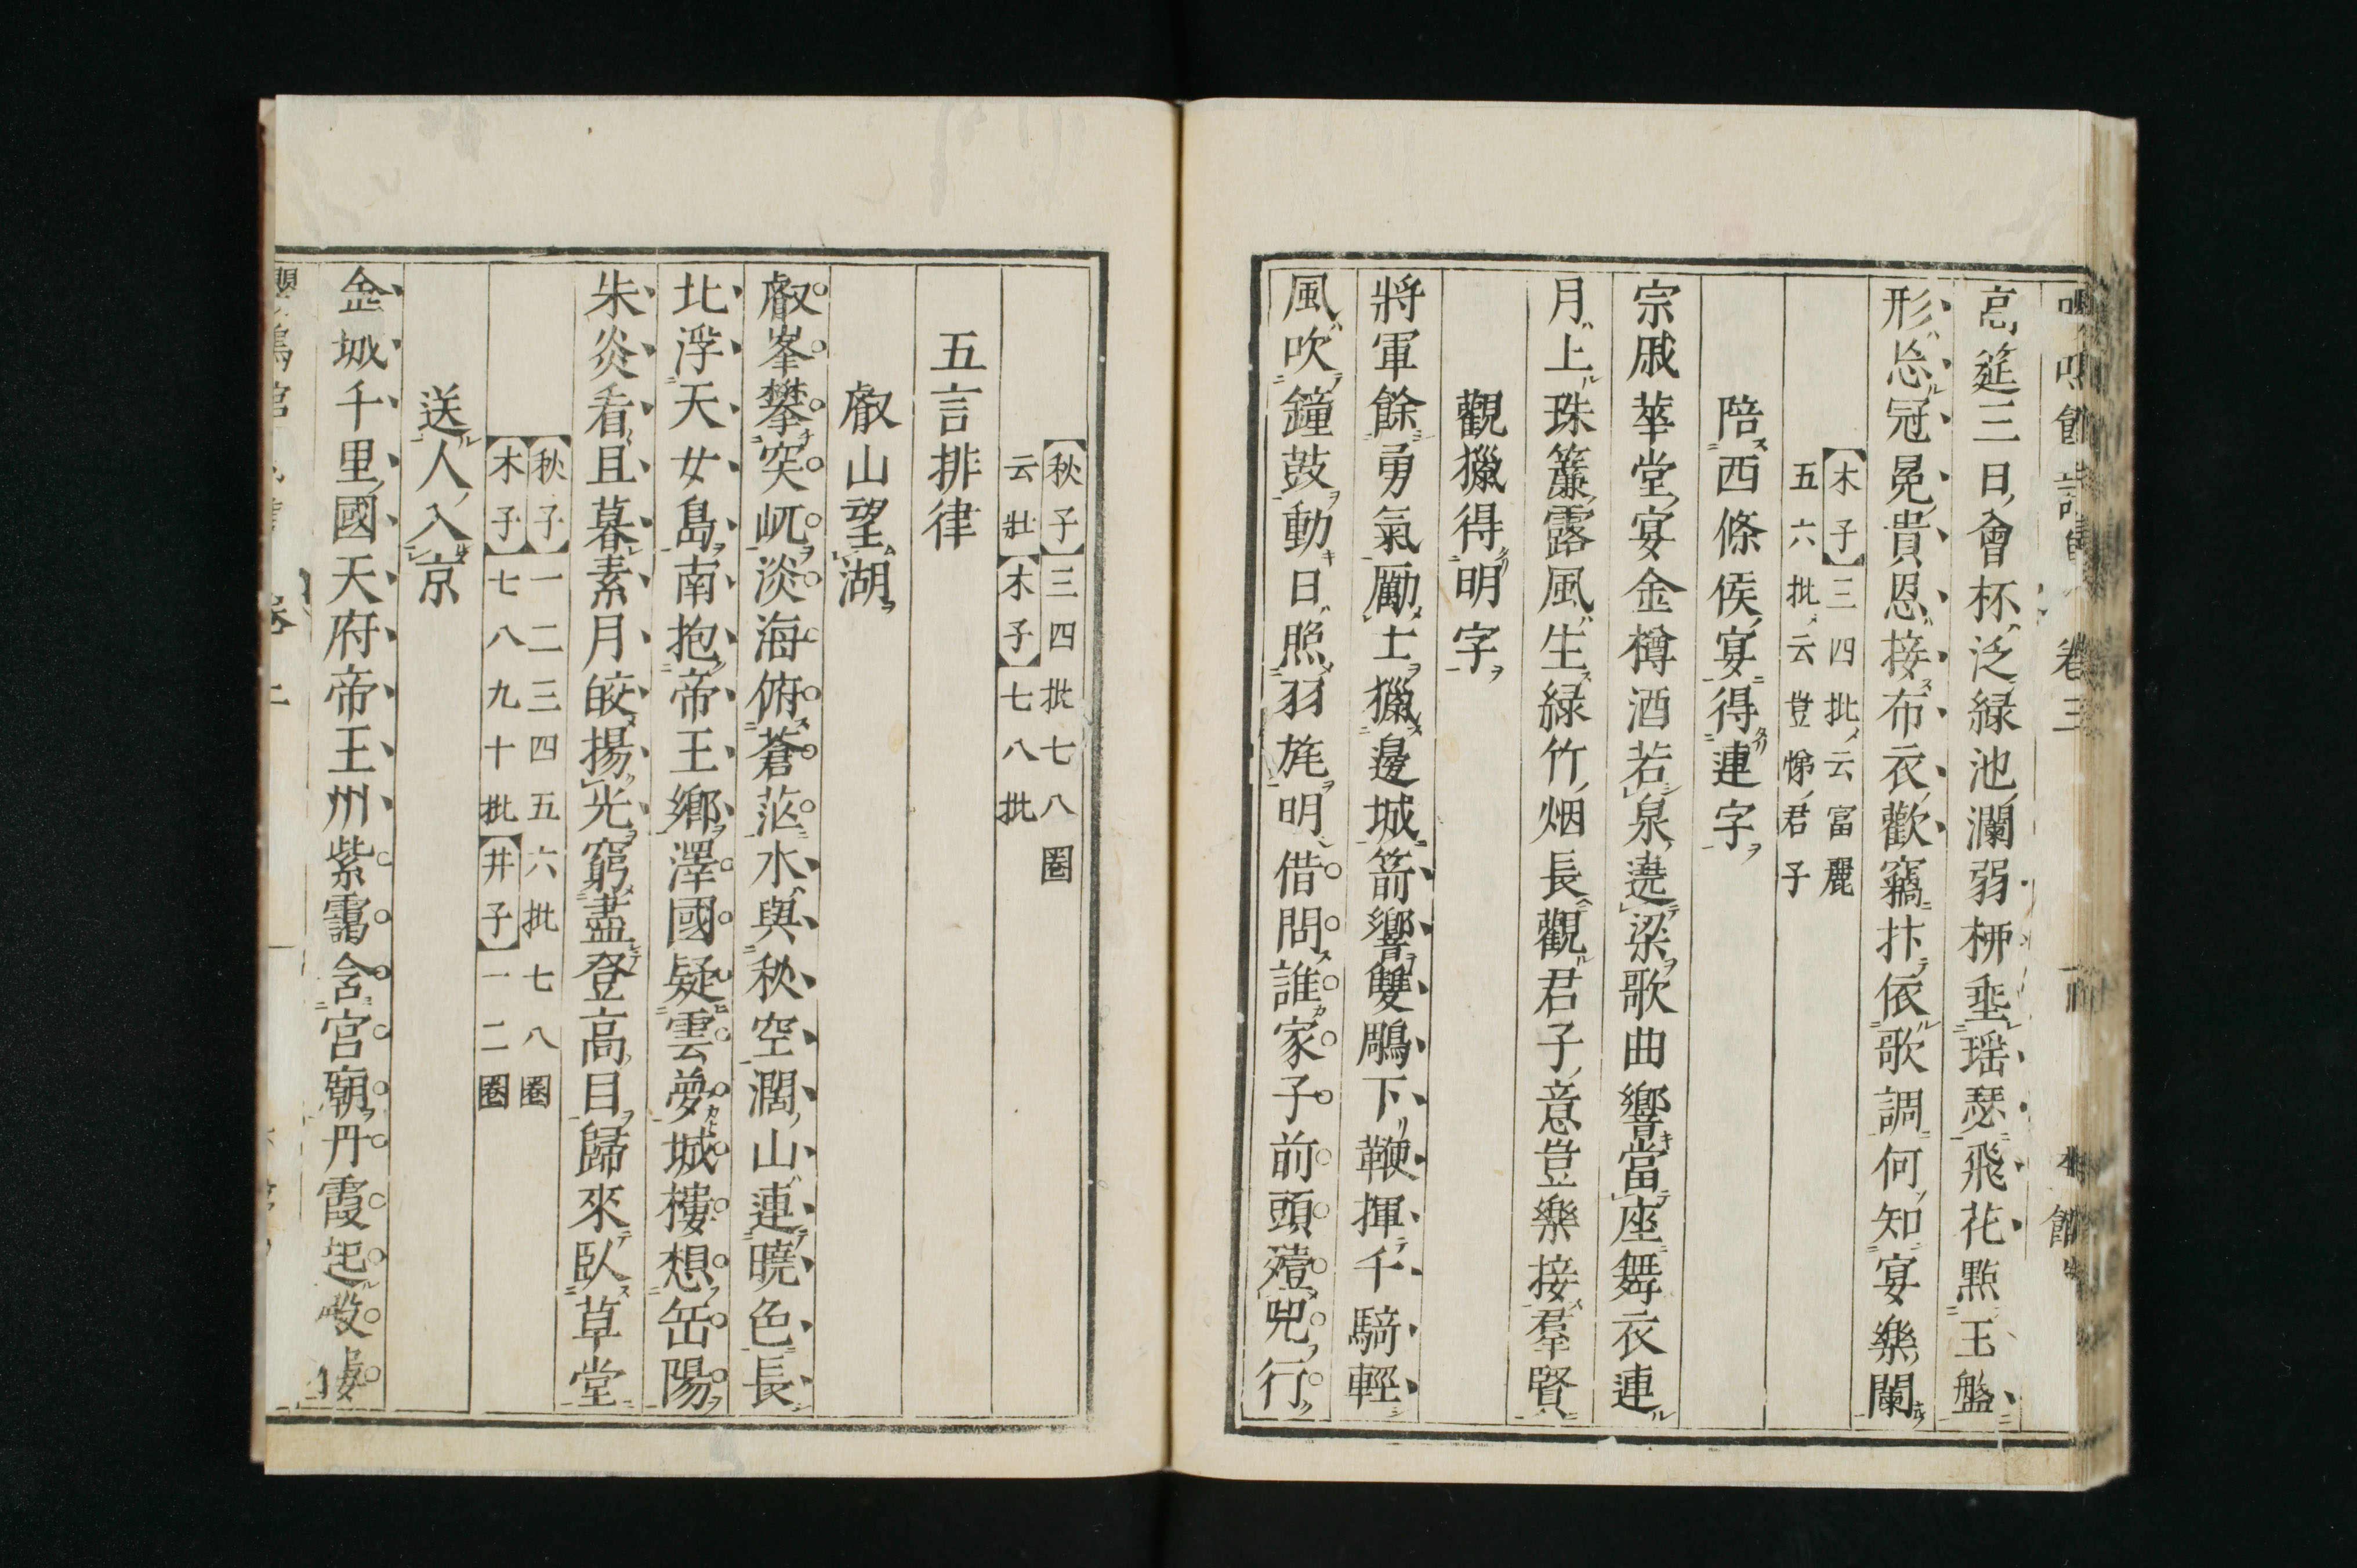 高筵三日會杯泛緑池瀾弱桺垂瑶瑟飛花點玉盤
形忩冠冕貴恩接布衣歡竊抃依歌調何知宴樂闌
【木子】三四批云富麗
五六批云豈悌君子
陪西條侯宴得連字
宗戚華堂宴金樽酒若泉遶梁歌曲響當座舞衣連
月上珠簾露風生緑竹烟長觀君子意豈樂接羣賢
觀獵得明字
將軍餘勇氣勵士獵邊城箭響雙鵰下鞭揮千騎輕
風吹鐘鼓動日照羽旄明借問誰家子前頭殪兕行
【秋子】三四批七八圈
云壯【木子】七八批
五言排律
叡山望湖
叡峯攀突屼淡海俯蒼茫水與秋空濶山連曉色長
北浮天女島南抱帝王鄉澤國疑雲夢城樓想岳陽
朱炎看且暮素月皎揚光窮盡登高目歸來臥草堂
【秋子】一二三四五六批七八圈
【木子】七八九十批【井子】一二圈
送人入京
金城千里國天府帝王州紫靄含宮廟丹霞起